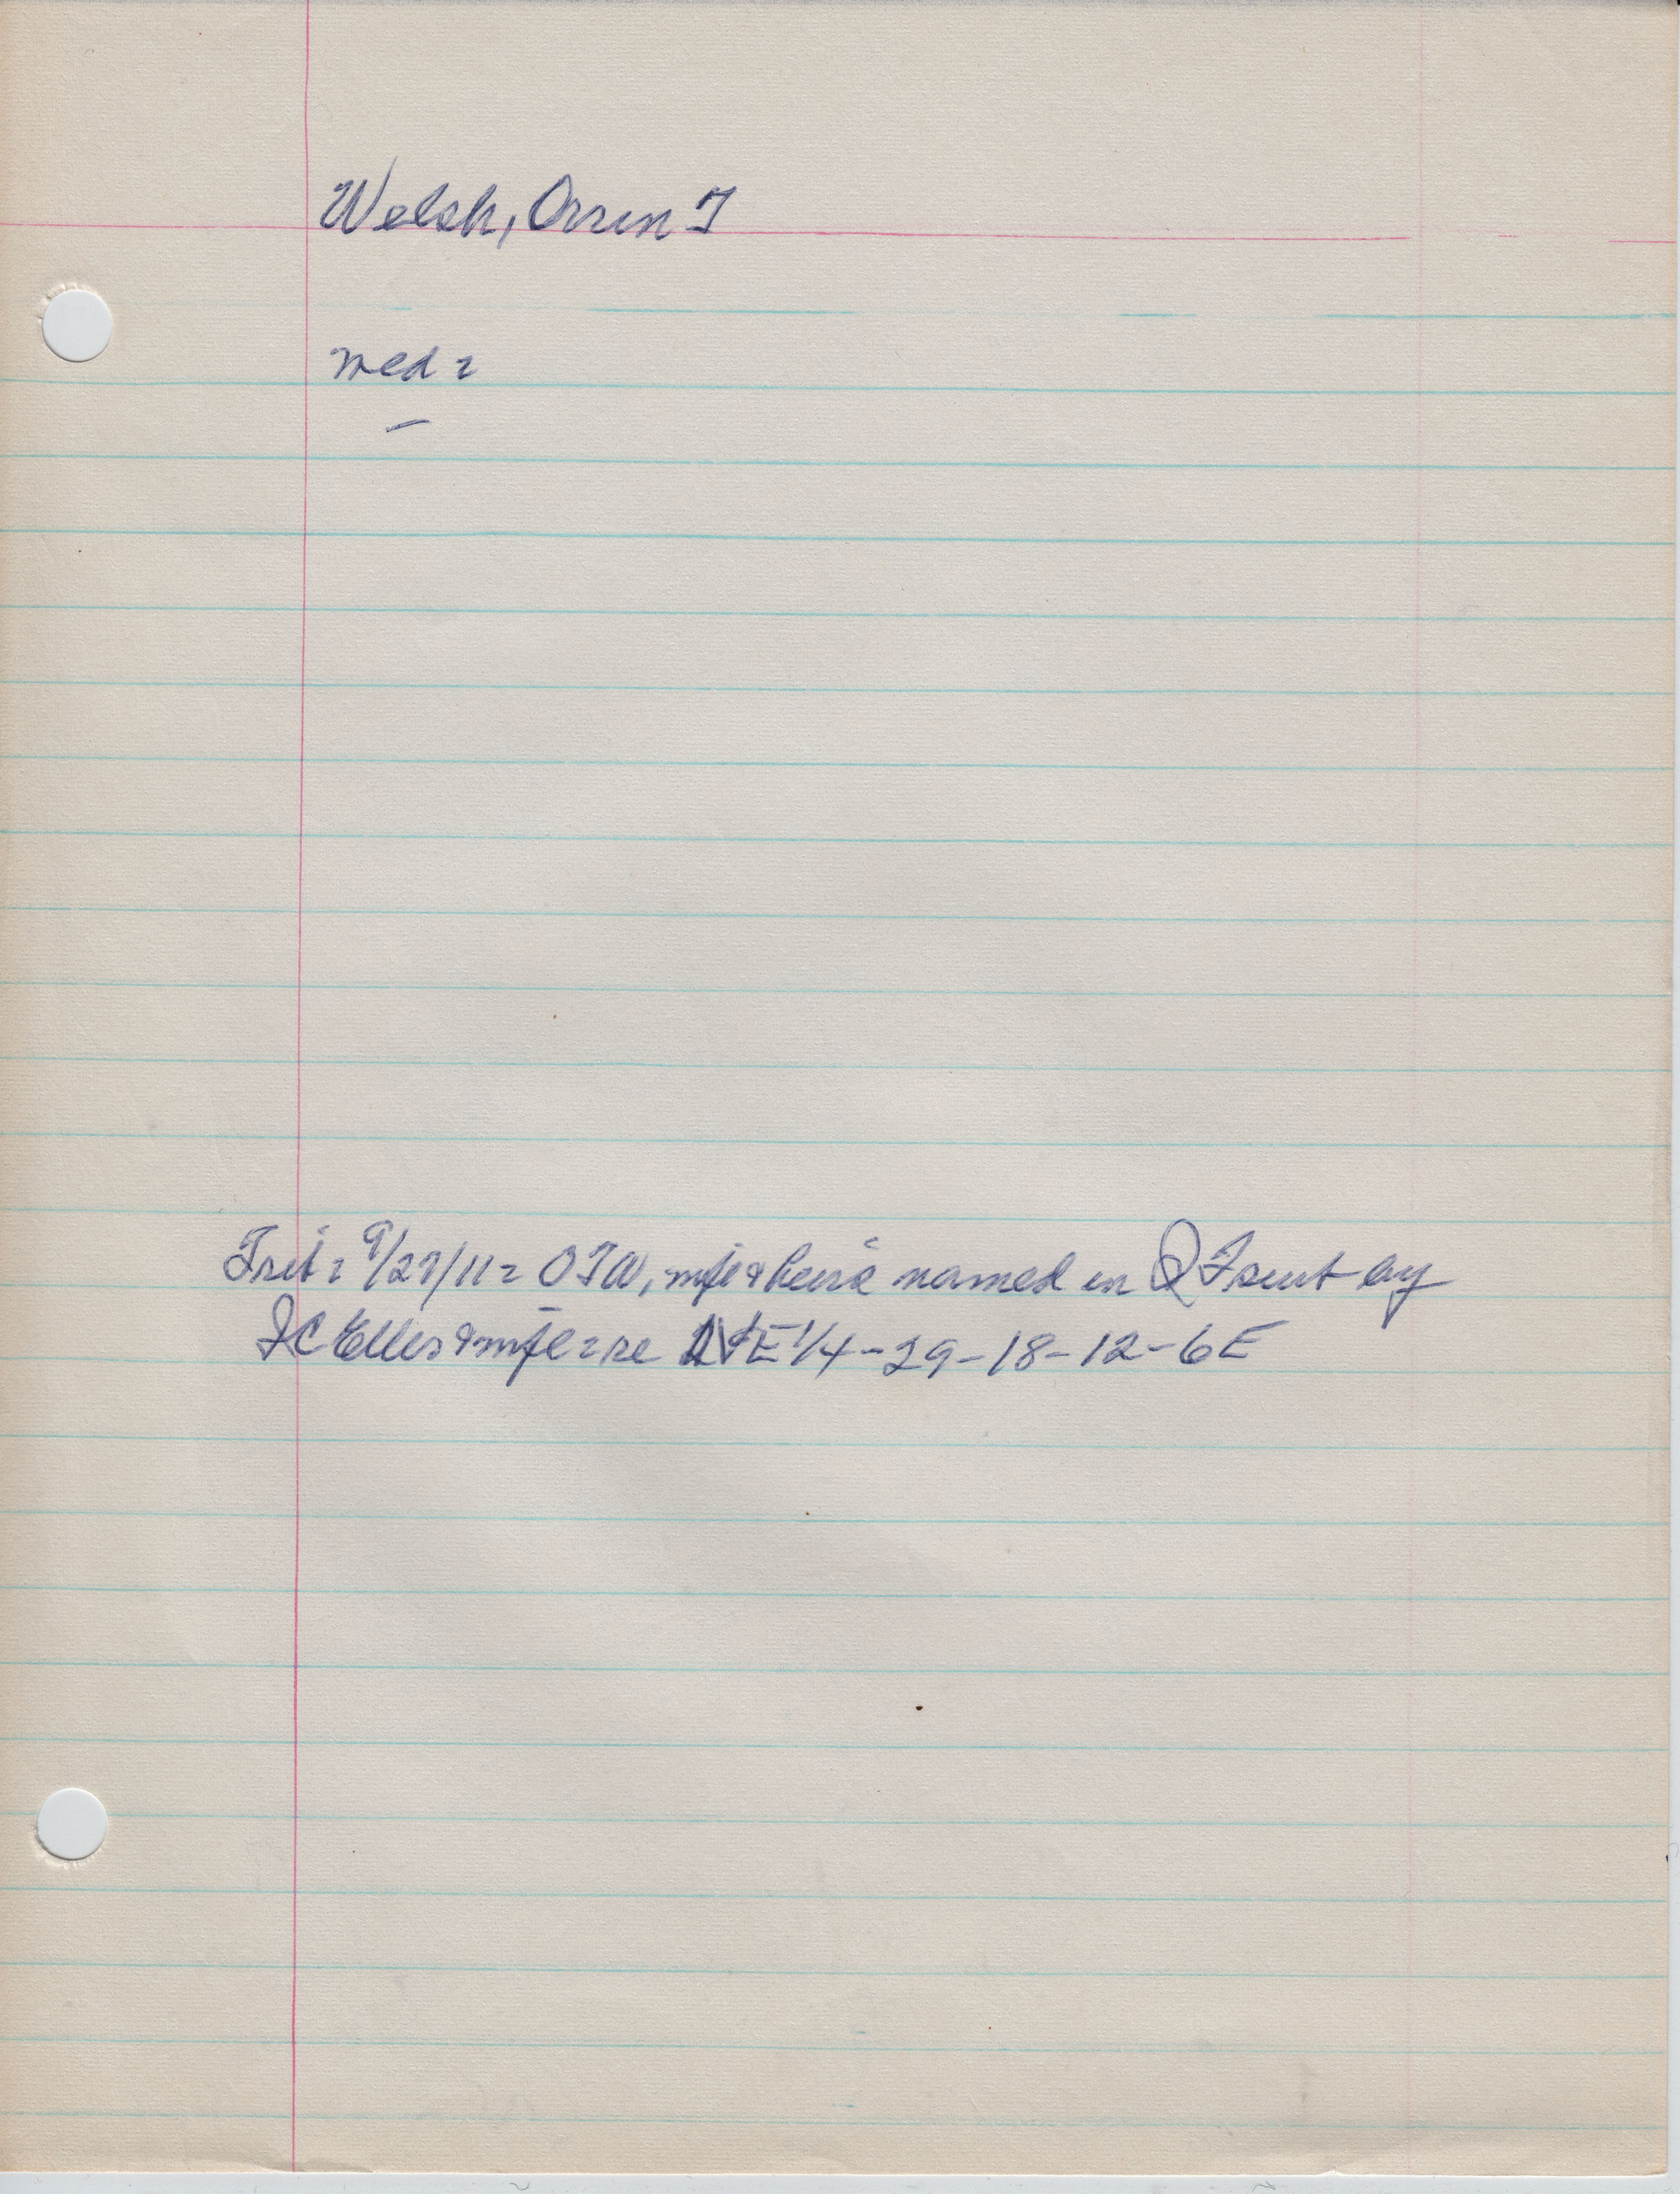 Welsh, Orrin T
med =
Trib = 9/27/11 = OTW, wife & heirs named in Q T suit by
I C Eller & wife = re NE 1/4 - 29 - 18 - 12 - 6E